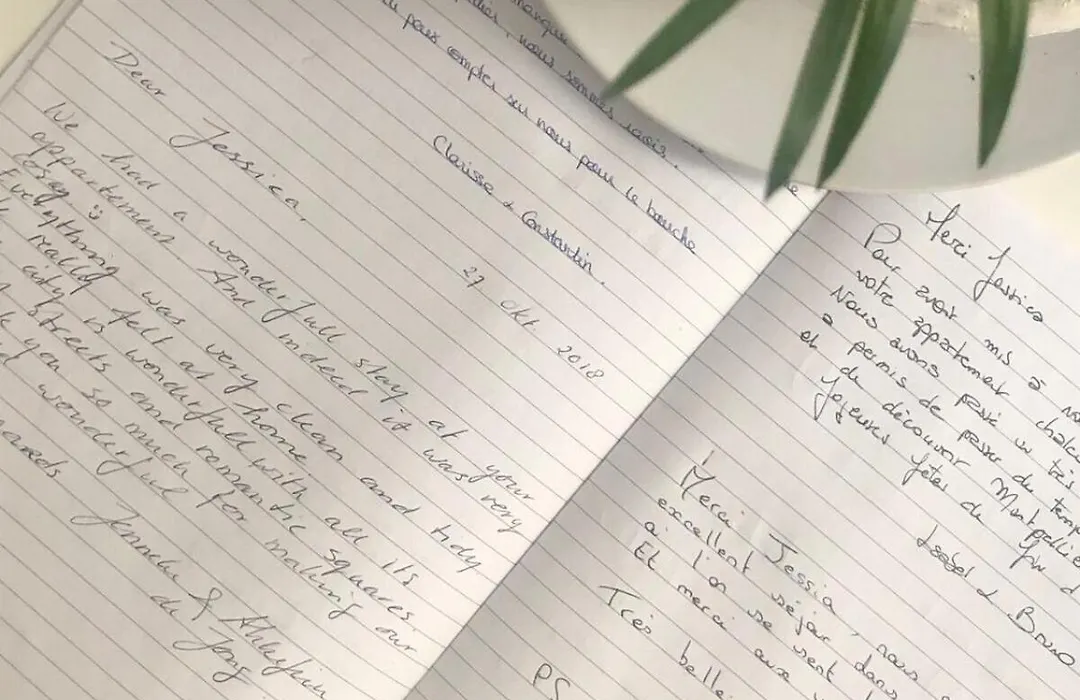 manque
nous sommes ravis.
pour compter sur nous pour le bouche
Clarisse & Constantin.
27 okt 2018
Dear Jessica,
We had a wonderfull stay at your
appartement. And indeed it was very
cosy :)
Everything was very clean and tidy
really felt at home
city is wonderfull with all its
streets and romantic squares
you so much for making our
wonderful
Janneke &
de Jong
Merci Jessica
Pour avoir mis à
votre appartement
Nous avons passé un très
a permis de passer du temps
et de découvrir Montpellier
Joyeuses fêtes de fin d
Isabel & Bruno
Merci Jessia
excellent séjour, nous
où l'on se sent dans
Et merci aux
Très belle
PS